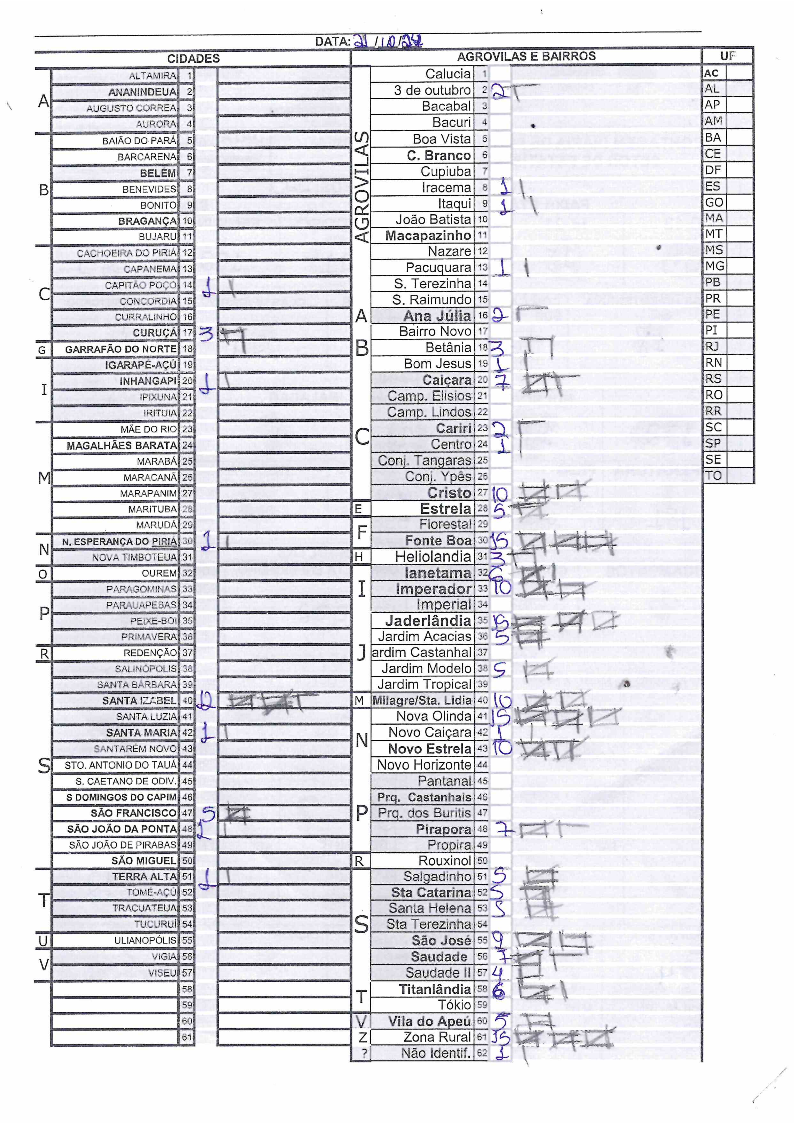 DATA: 21/10/24
CIDADES
A
ALTAMIRA 1
ANANINDEUA 2
AUGUSTO CORREA 3
AURORA 4
B
BAIÃO DO PARÁ 5
BARCARENA 6
BELÉM 7
BENEVIDES 8
BONITO 9
BRAGANÇA 10
BUJARU 11
C
CACHOEIRA DO PIRIÁ 12
CAPANEMA 13
CAPITÃO POÇO 14 1
CONCORDIA 15
CURRALINHO 16
CURUÇÁ 17 3
G GARRAFÃO DO NORTE 18
I
IGARAPÉ-AÇÚ 19
INHANGAPI 20 1
IPIXUNA 21
IRITUIA 22
M
MÃE DO RIO 23
MAGALHÃES BARATA 24
MARABÁ 25
MARACANÃ 26
MARAPANIM 27
MARITUBA 28
MARUDÁ 29
N
N. ESPERANÇA DO PIRIA 30 1
NOVA TIMBOTEUA 31
O OUREM 32
P
PARAGOMINAS 33
PARAUAPEBAS 34
PEIXE-BOI 35
PRIMAVERA 36
R REDENÇÃO 37
S
SALINÓPOLIS 38
SANTA BÁRBARA 39
SANTA IZABEL 40
SANTA LUZIA 41
SANTA MARIA 42 1
SANTARÉM NOVO 43
STO. ANTONIO DO TAUÁ 44
S. CAETANO DE ODIV. 45
S DOMINGOS DO CAPIM 46
SÃO FRANCISCO 47 5
SÃO JOÃO DA PONTA 48 1
SÃO JOÃO DE PIRABAS 49
SÃO MIGUEL 50
T
TERRA ALTA 51 1
TOMÉ-AÇU 52
TRACUATEUA 53
TUCURUÍ 54
U ULIANOPÓLIS 55
V
VIGIA 56
VISEU 57
58
59
60
61
AGROVILAS E BAIRROS
AGROVILAS
Calucia 1
3 de outubro 2 2
Bacabal 3
Bacuri 4
Boa Vista 5
C. Branco 6
Cupiuba 7
Iracema 8 1
Itaqui 9 1
João Batista 10
Macapazinho 11
Nazare 12
Pacuquara 13 1
S. Terezinha 14
S. Raimundo 15
A Ana Júlia 16 2
B
Bairro Novo 17
Betânia 18 3
Bom Jesus 19 1
C
Caiçara 20 7
Camp. Elisios 21
Camp. Lindos 22
Cariri 23 2
Centro 24 1
Conj. Tangaras 25
Conj. Ypês 26
Cristo 27 10
E Estrela 28 5
F
Florestal 29
Fonte Boa 30 15
H Heliolandia 31 3
I
Ianetama 32 6
Imperador 33 10
Imperial 34
J
Jaderlândia 35
Jardim Acacias 36 5
ardim Castanhal 37
Jardim Modelo 38 5
Jardim Tropical 39
M Milagre/Sta. Lidia 40 10
N
Nova Olinda 41 15
Novo Caiçara 42 1
Novo Estrela 43 10
Novo Horizonte 44
P
Pantanal 45
Prq. Castanhais 46
Prq. dos Buritis 47
Pirapora 48 7
Propira 49
R Rouxinol 50
S
Salgadinho 51 5
Sta Catarina 52 5
Santa Helena 53 5
Sta Terezinha 54
São José 55 9
Saudade 56 7
Saudade II 57 4
T
Titanlândia 58 6
Tókio 59
V Vila do Apeú 60 5
Z Zona Rural 61 15
? Não Identif. 62 1
UF
AC
AL
AP
AM
BA
CE
DF
ES
GO
MA
MT
MS
MG
PB
PR
PE
PI
RJ
RN
RS
RO
RR
SC
SP
SE
TO